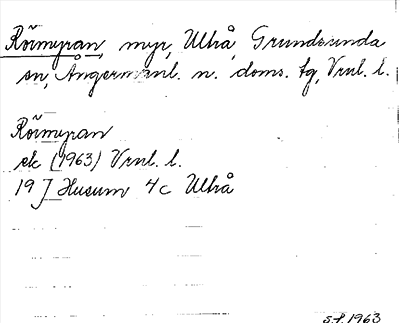 Rörmyran, myr, Ultrå, Grundsunda
sn, Ångermanl. n. doms. tg, Vrnl. l.
Rörmyran
ek (1963) Vrnl. l.
19 J Husum 4c Ultrå
s.f. 1963